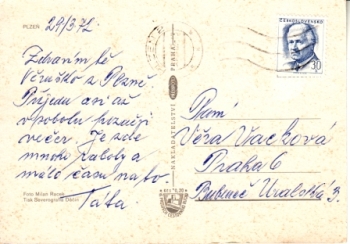 PLZEŇ
29/3.72.
Zdravím tě
Věruško z Plzně.
Přijedu asi až
v sobotu později
večer. Je zde
mnoho roboty a
málo času na to
Táta.
Foto Milan
Tisk Severografia Děčín
NAKLADATELSTVÍ
PRAHA
ČESKOSLOVENSKO
30
Paní
Věra Vacková
Praha 6
Bubeneč Uralská 3.